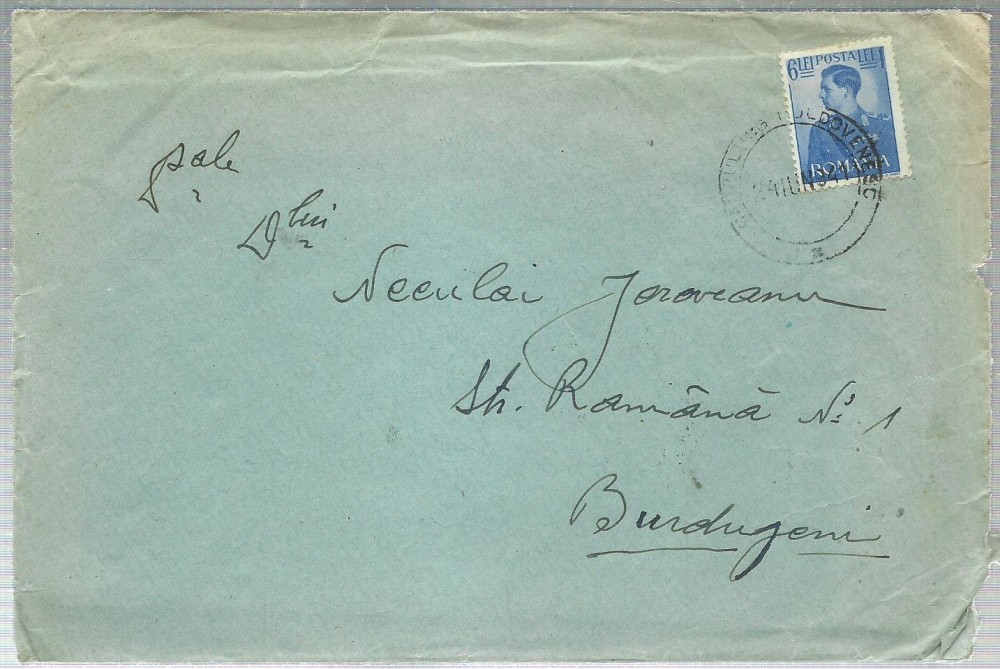 6 LEI POSTA LEI
ROMANIA
MOLDOVENESC
24 IUN 941
Dlui
Neculai Jeroveanu
Str. Română No 1
Burdugeni